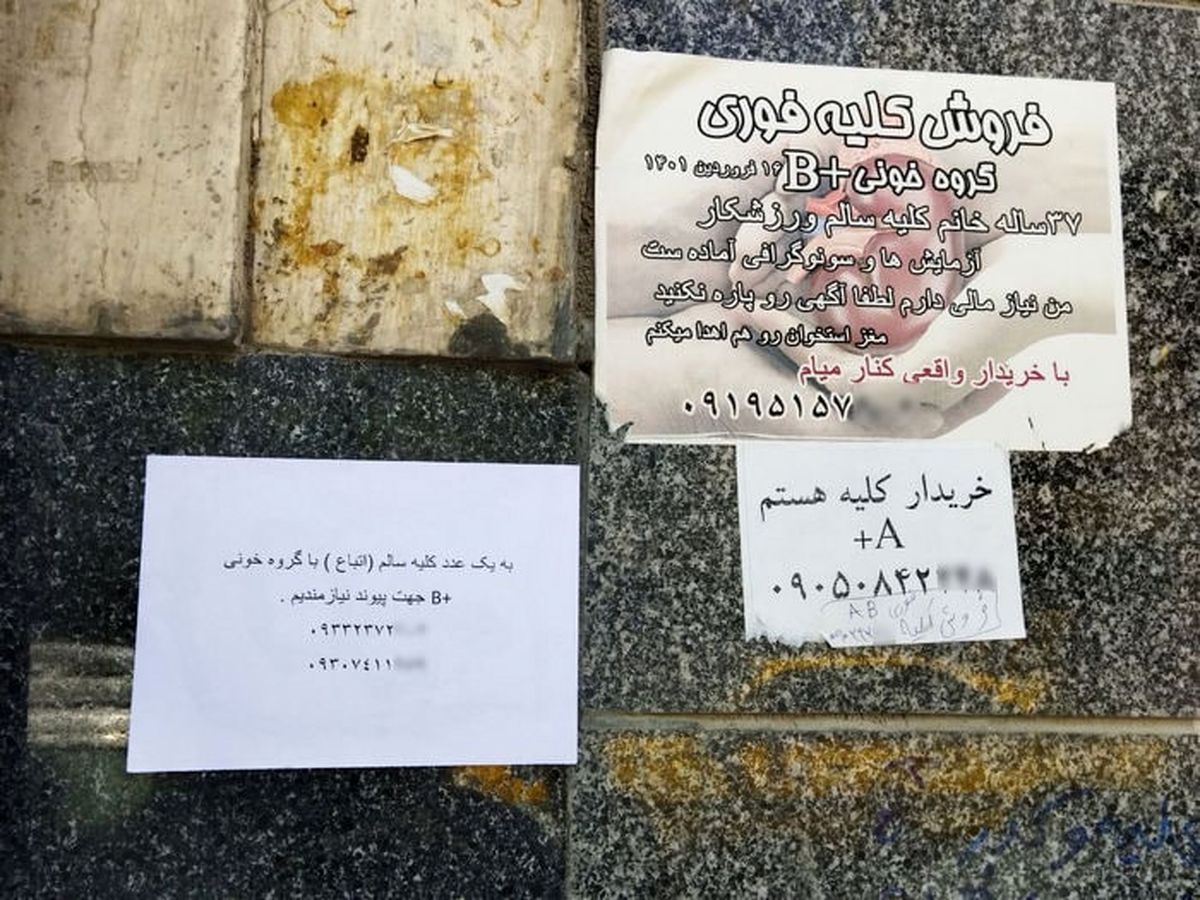 فروش کلیه فوری
گروه خونی B+ ۱۶ فروردین ۱۴۰۱
۳۷ساله خانم کلیه سالم ورزشکار
آزمایش ها و سونوگرافی آماده ست
من نیاز مالی دارم لطفا آگهی رو پاره نکنید
مغز استخوان رو هم اهدا میکنم
با خریدار واقعی کنار میام
۰۹۱۹۵۱۵۷
خریدار کلیه هستم
A+
۰۹۰۵۰۸۴۲
فروش کلیه فوری AB
به یک عدد کلیه سالم (اتباع ) با گروه خونی
B+ جهت پیوند نیازمندیم .
۰۹۳۳۲۳۷۲
۰۹۳۰۷٤۱۱